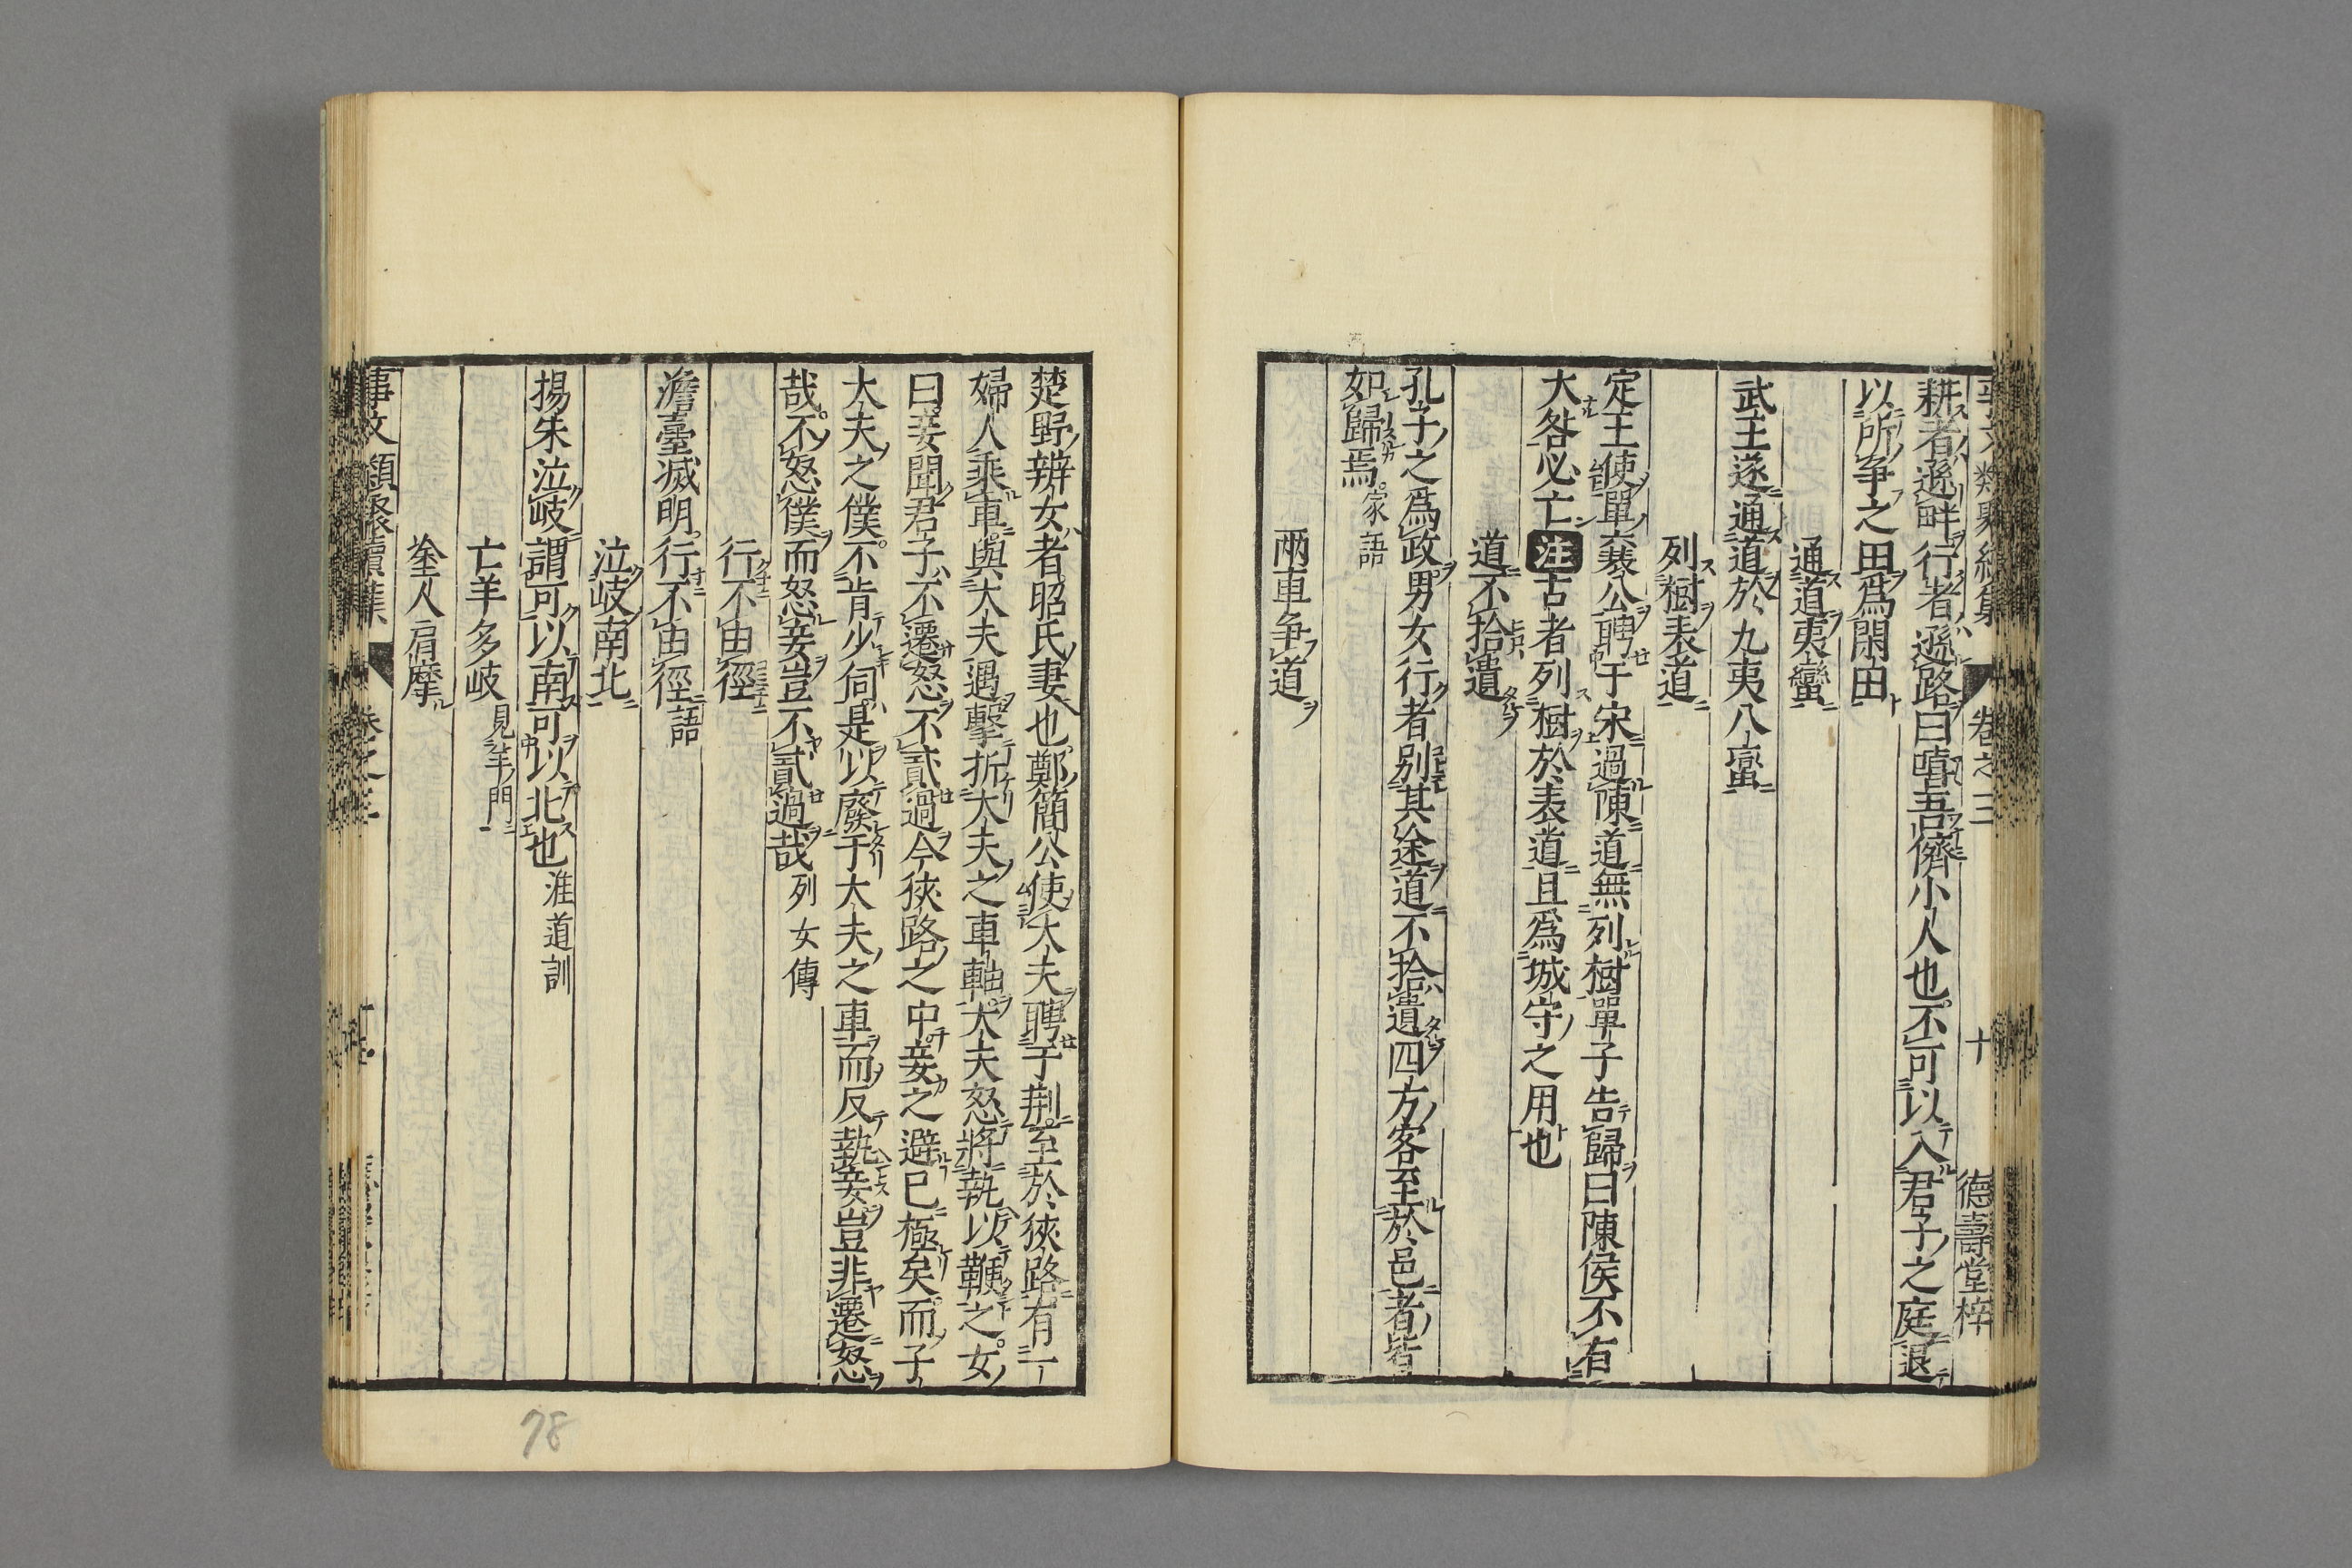 耕者遜畔行者遜路曰嘻吾儕小人也不可以入君子之庭退
以所争之田爲閑田
通道夷蠻
武王遂通道於九夷八蛮
列樹表道
定王使單襄公聘于宋過陳道無列樹單子告歸曰陳侯不有
大咎必亡注古者列樹於表道且爲城守之用也
道不拾遺
孔子之爲政男女行者別其途道不拾遺四方客至於邑者皆
如歸焉家語
兩車争道
楚野辨女者昭氏妻也鄭簡公使大夫聘于荆至於狹路有一
婦人乘車與大夫遇擊折大夫之車軸大夫怒將執以鞭之女
曰妾聞君子不遷怒不貳過今狹路之中妾之避已極矣而子
大夫之僕不肯少伺是以廢于大夫之車而反執妾豈非遷怒
哉不怒僕而怒妾豈不貳過哉列女傳
行不由徑
澹臺滅明行不由徑語
泣岐南北
揚朱泣岐謂可以南可以北也淮道訓
亡羊多岐見羊門
塗人肩摩
事文類聚續集 卷之三
卷之三 十 德壽堂梓
78